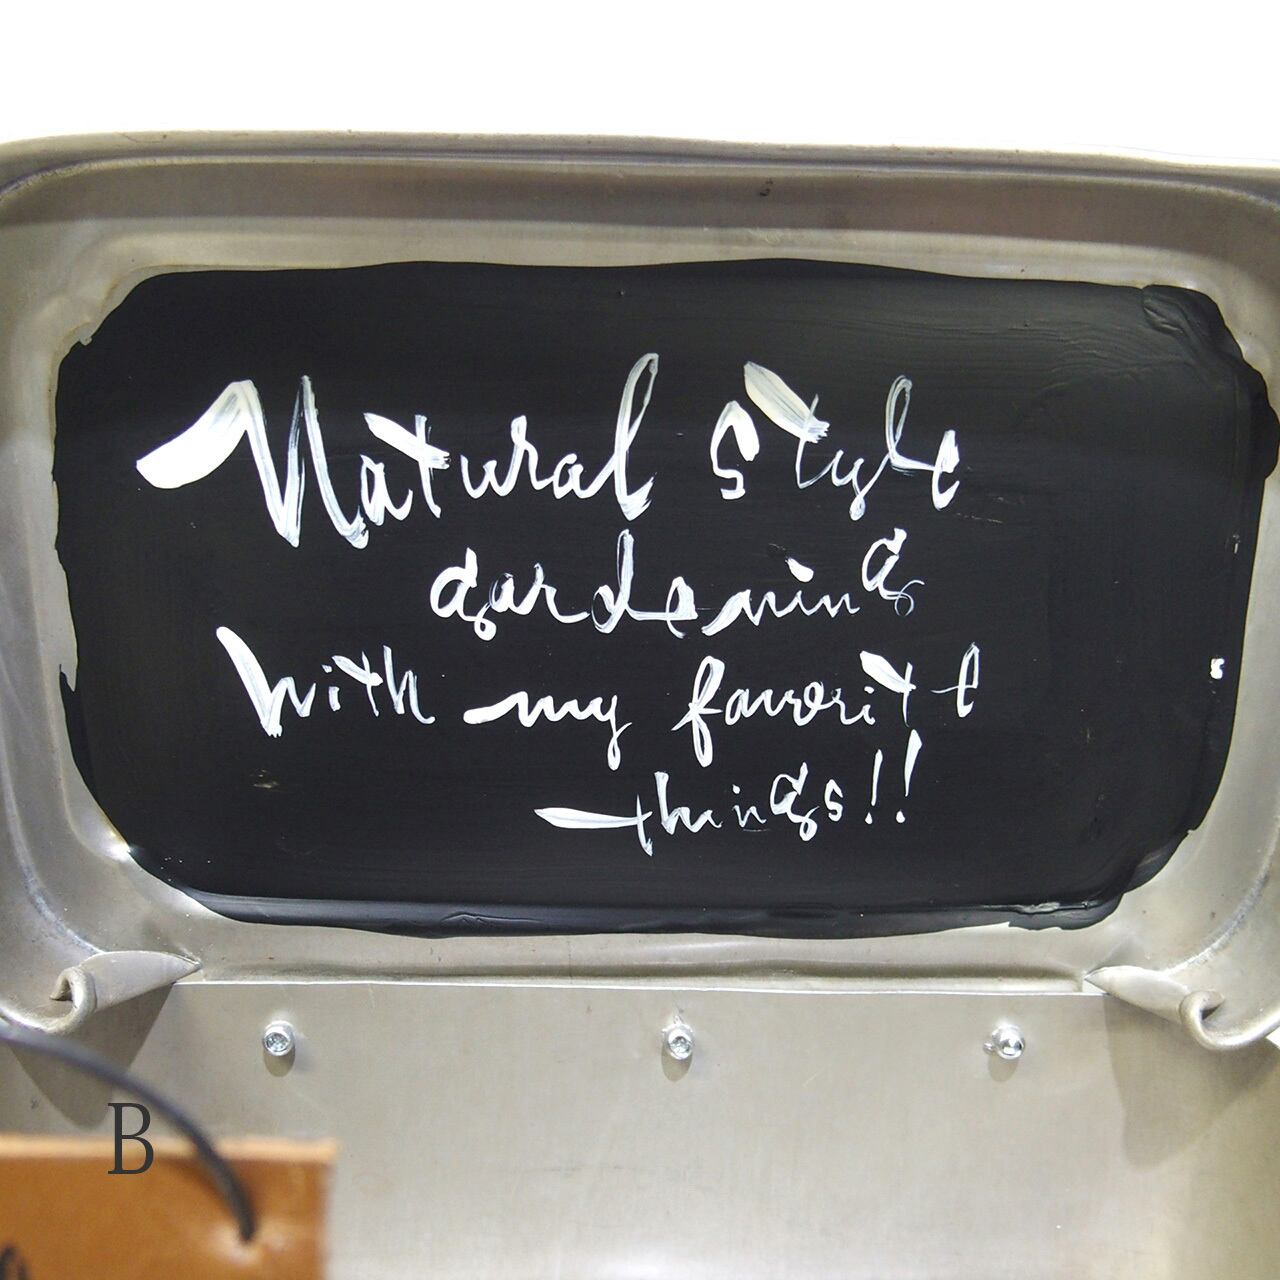 Natural style
gardening
with my favorite
things!!
B